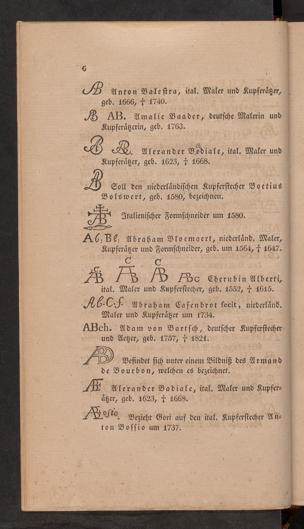 6
AB Anton Balestra, ital. Maler und Kupferätzer,
geb. 1666, † 1740.
AB AB. Amalie Baader, deutsche Malerin und
Kupferätzerin, geb. 1763.
Alexander Badiale, ital. Maler und
Kupferätzer, geb. 1623, † 1668.
Soll den niederländischen Kupferstecher Boetius
Bolswert, geb. 1580, bezeichnen.
Italienischer Formschneider um 1580.
Ab, Bl, Abraham Bloemaert, niederländ. Maler,
Kupferätzer und Formschneider, geb. um 1564, † 1647.
ABc Cherubin Alberti,
ital. Maler und Kupferstecher, geb. 1552, † 1615.
Ab. C. f. Abraham Casenbrot fecit, niederländ.
Maler und Kupferätzer um 1734.
ABch. Adam von Bartsch, deutscher Kupferstecher
und Aetzer, geb. 1757, † 1821.
Befindet sich unter einem Bildniß des Armand
de Bourbon, welchen es bezeichnet.
Alexander Badiale, ital. Maler und Kupfer-
ätzer, geb. 1623, † 1668.
Bezieht Gori auf den ital. Kupferstecher An-
ton Bossio um 1737.